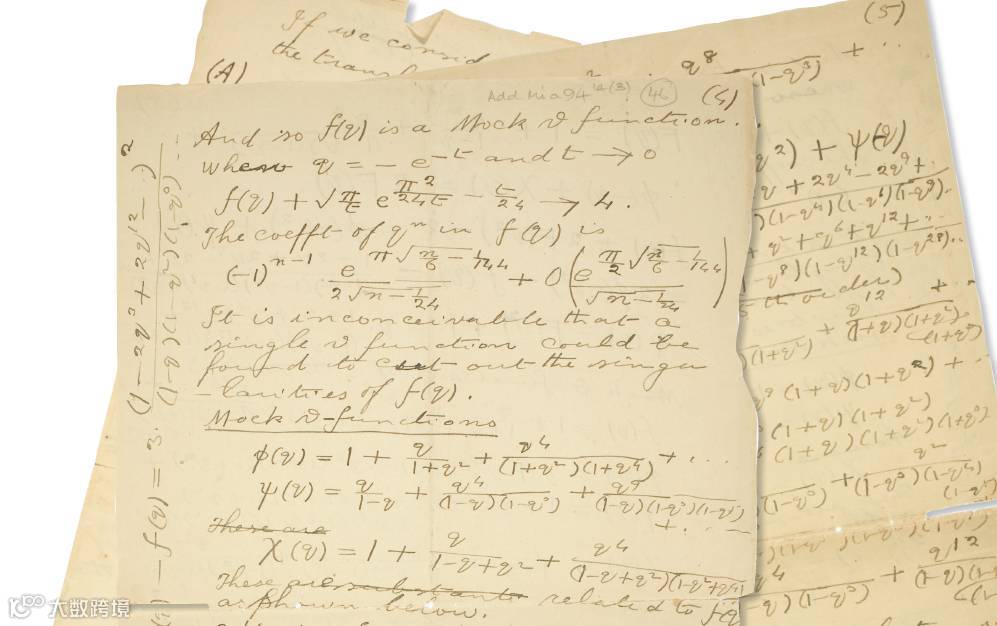 If we consid
the transf
(A)
(5)
q^8
(1-q^3) + ..
Add Ms a94^12(3) (46) (4)
And so f(q) is a Mock ϑ function.
when q = - e^-t and t → 0
f(q) + √(π/t) e^(π²/24t - t/24) → 4.
The coefft of q^n in f(q) is
(-1)^(n-1) e^(π√(n/6 - 1/144)) / (2√(n - 1/24)) + O(e^(π/2 √(n/6 - 1/144)) / √(n - 1/24))
It is inconceivable that a
single ϑ function could be
found to cut out the singu
-larities of f(q).
Mock ϑ-functions
φ(q) = 1 + q/(1+q²) + q^4/((1+q²)(1+q^4)) + ...
ψ(q) = q/(1-q) + q^4/((1-q)(1-q³)) + q^9/((1-q)(1-q³)(1-q^5)) + ...
There are
χ(q) = 1 + q/(1-q+q²) + q^4/((1-q+q²)(1-q²+q^4))
These are related to f(q)
as shown below.
- f(q) = 3. (1-2q³+2q^12- )² / (1-q)(1-q²)(1-q³)..
q²) + ψ(q)
q + 2q^4 - 2q^9 +
)(1-q^4)(1-q^6)(1-q^9)..
+ q² + q^6 + q^12 + ..
-q^8)(1-q^12)(1-q^28)..
5th order)
(1+q²) + q^12 / (1+q)(1+q²)(1+q³) + ..
q^9 (1+q)(1+q²) + ..
(1+q)(1+q²)
(1+q)(1+q²)(1+q³)
(1-q³) + q² / (1-q³)(1-q^4)(1-q^5)
q^4 / -q)(1-q³) + q^12 / (1-q)(1-
大数跨境